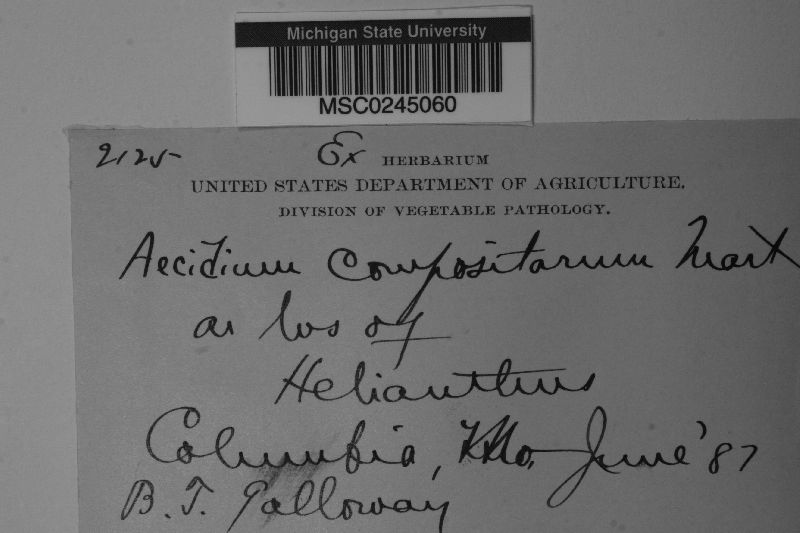 Michigan State University
MSC0245060
2125
Ex HERBARIUM
UNITED STATES DEPARTMENT OF AGRICULTURE.
DIVISION OF VEGETABLE PATHOLOGY.
Aecidium compositarum Mart
on lvs of
Helianthus
Columbia, Mo. June '87
B. T. Galloway